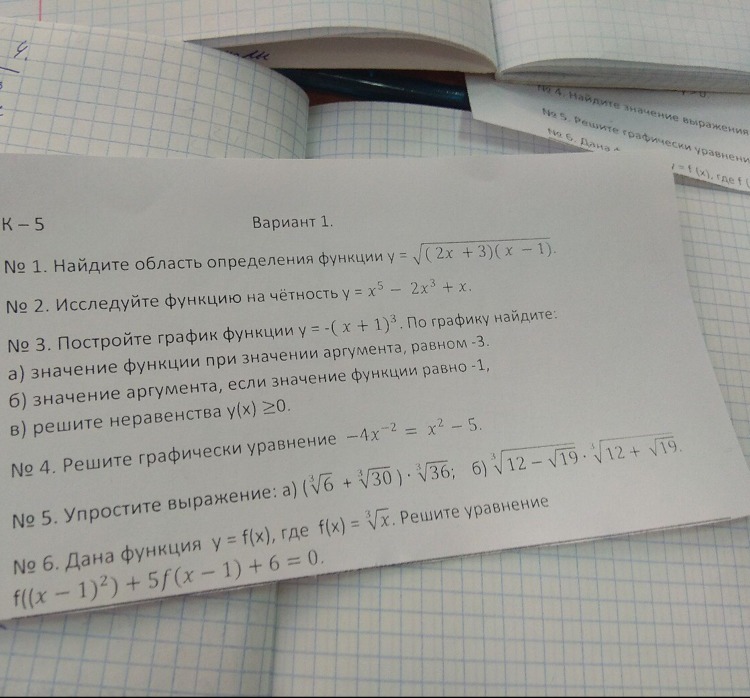 4.
К – 5 Вариант 1.
№ 1. Найдите область определения функции y = √((2x + 3)(x − 1)).
№ 2. Исследуйте функцию на чётность y = x⁵ − 2x³ + x.
№ 3. Постройте график функции y = -( x + 1)³. По графику найдите:
а) значение функции при значении аргумента, равном -3.
б) значение аргумента, если значение функции равно -1,
в) решите неравенства y(x) ≥0.
№ 4. Решите графически уравнение −4x⁻² = x² − 5.
№ 5. Упростите выражение: а) (∛6 + ∛30) · ∛36; б) ∛(12 − √19) · ∛(12 + √19).
№ 6. Дана функция y = f(x), где f(x) = ∛x. Решите уравнение
f((x − 1)²) + 5f(x − 1) + 6 = 0.
№ 4. Найдите значение выражения
№ 5. Решите графически уравнени
№ 6. Дана
y = f (x), где f (